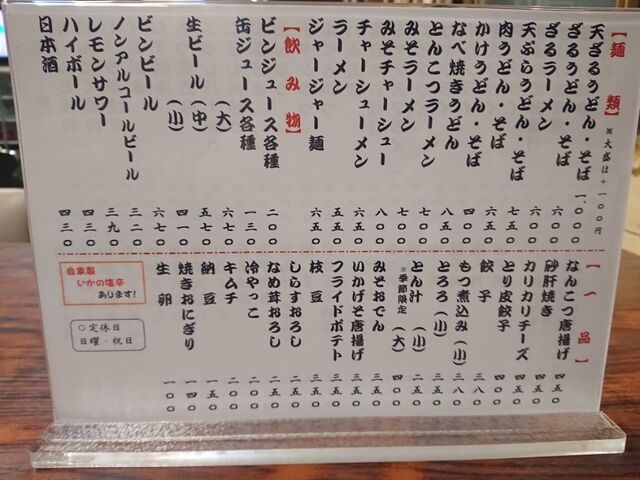 【麺類】※大盛は+一〇〇円
天ざるうどん・そば 一、〇〇〇
ざるうどん・そば 六〇〇
ざるラーメン 六〇〇
天ぷらうどん・そば 七五〇
肉うどん・そば 六五〇
かけうどん・そば 四五〇
なべ焼きうどん 八五〇
とんこつラーメン 七〇〇
みそラーメン 七〇〇
みそチャーシュー 八〇〇
チャーシューメン 六五〇
ラーメン 五五〇
ジャージャー麺 六五〇
【飲み物】
ビンジュース各種 二〇〇
缶ジュース各種 一三〇
（大） 六七〇
生ビール（中） 五七〇
（小） 四一〇
ビンビール 六七〇
ノンアルコールビール 三二〇
レモンサワー 三九〇
ハイボール 四三〇
日本酒 四三〇
【一品】
なんこつ唐揚げ 四五〇
砂肝焼き 四五〇
カリカリチーズ 四五〇
とり皮餃子 四五〇
餃子 三八〇
もつ煮込み（小） 三八〇
とろろ（小） 三五〇
とん汁（小） 二五〇
※季節限定（大） 四〇〇
みそおでん 三五〇
いかげそ唐揚げ 三五〇
フライドポテト 三五〇
枝豆 三五〇
しらすおろし 二五〇
なめ茸おろし 二五〇
冷やっこ 二〇〇
キムチ 二〇〇
納豆 一五〇
焼きおにぎり 一四〇
生卵 一〇〇
自家製
いかの塩辛
あります!
○定休日
日曜・祝日